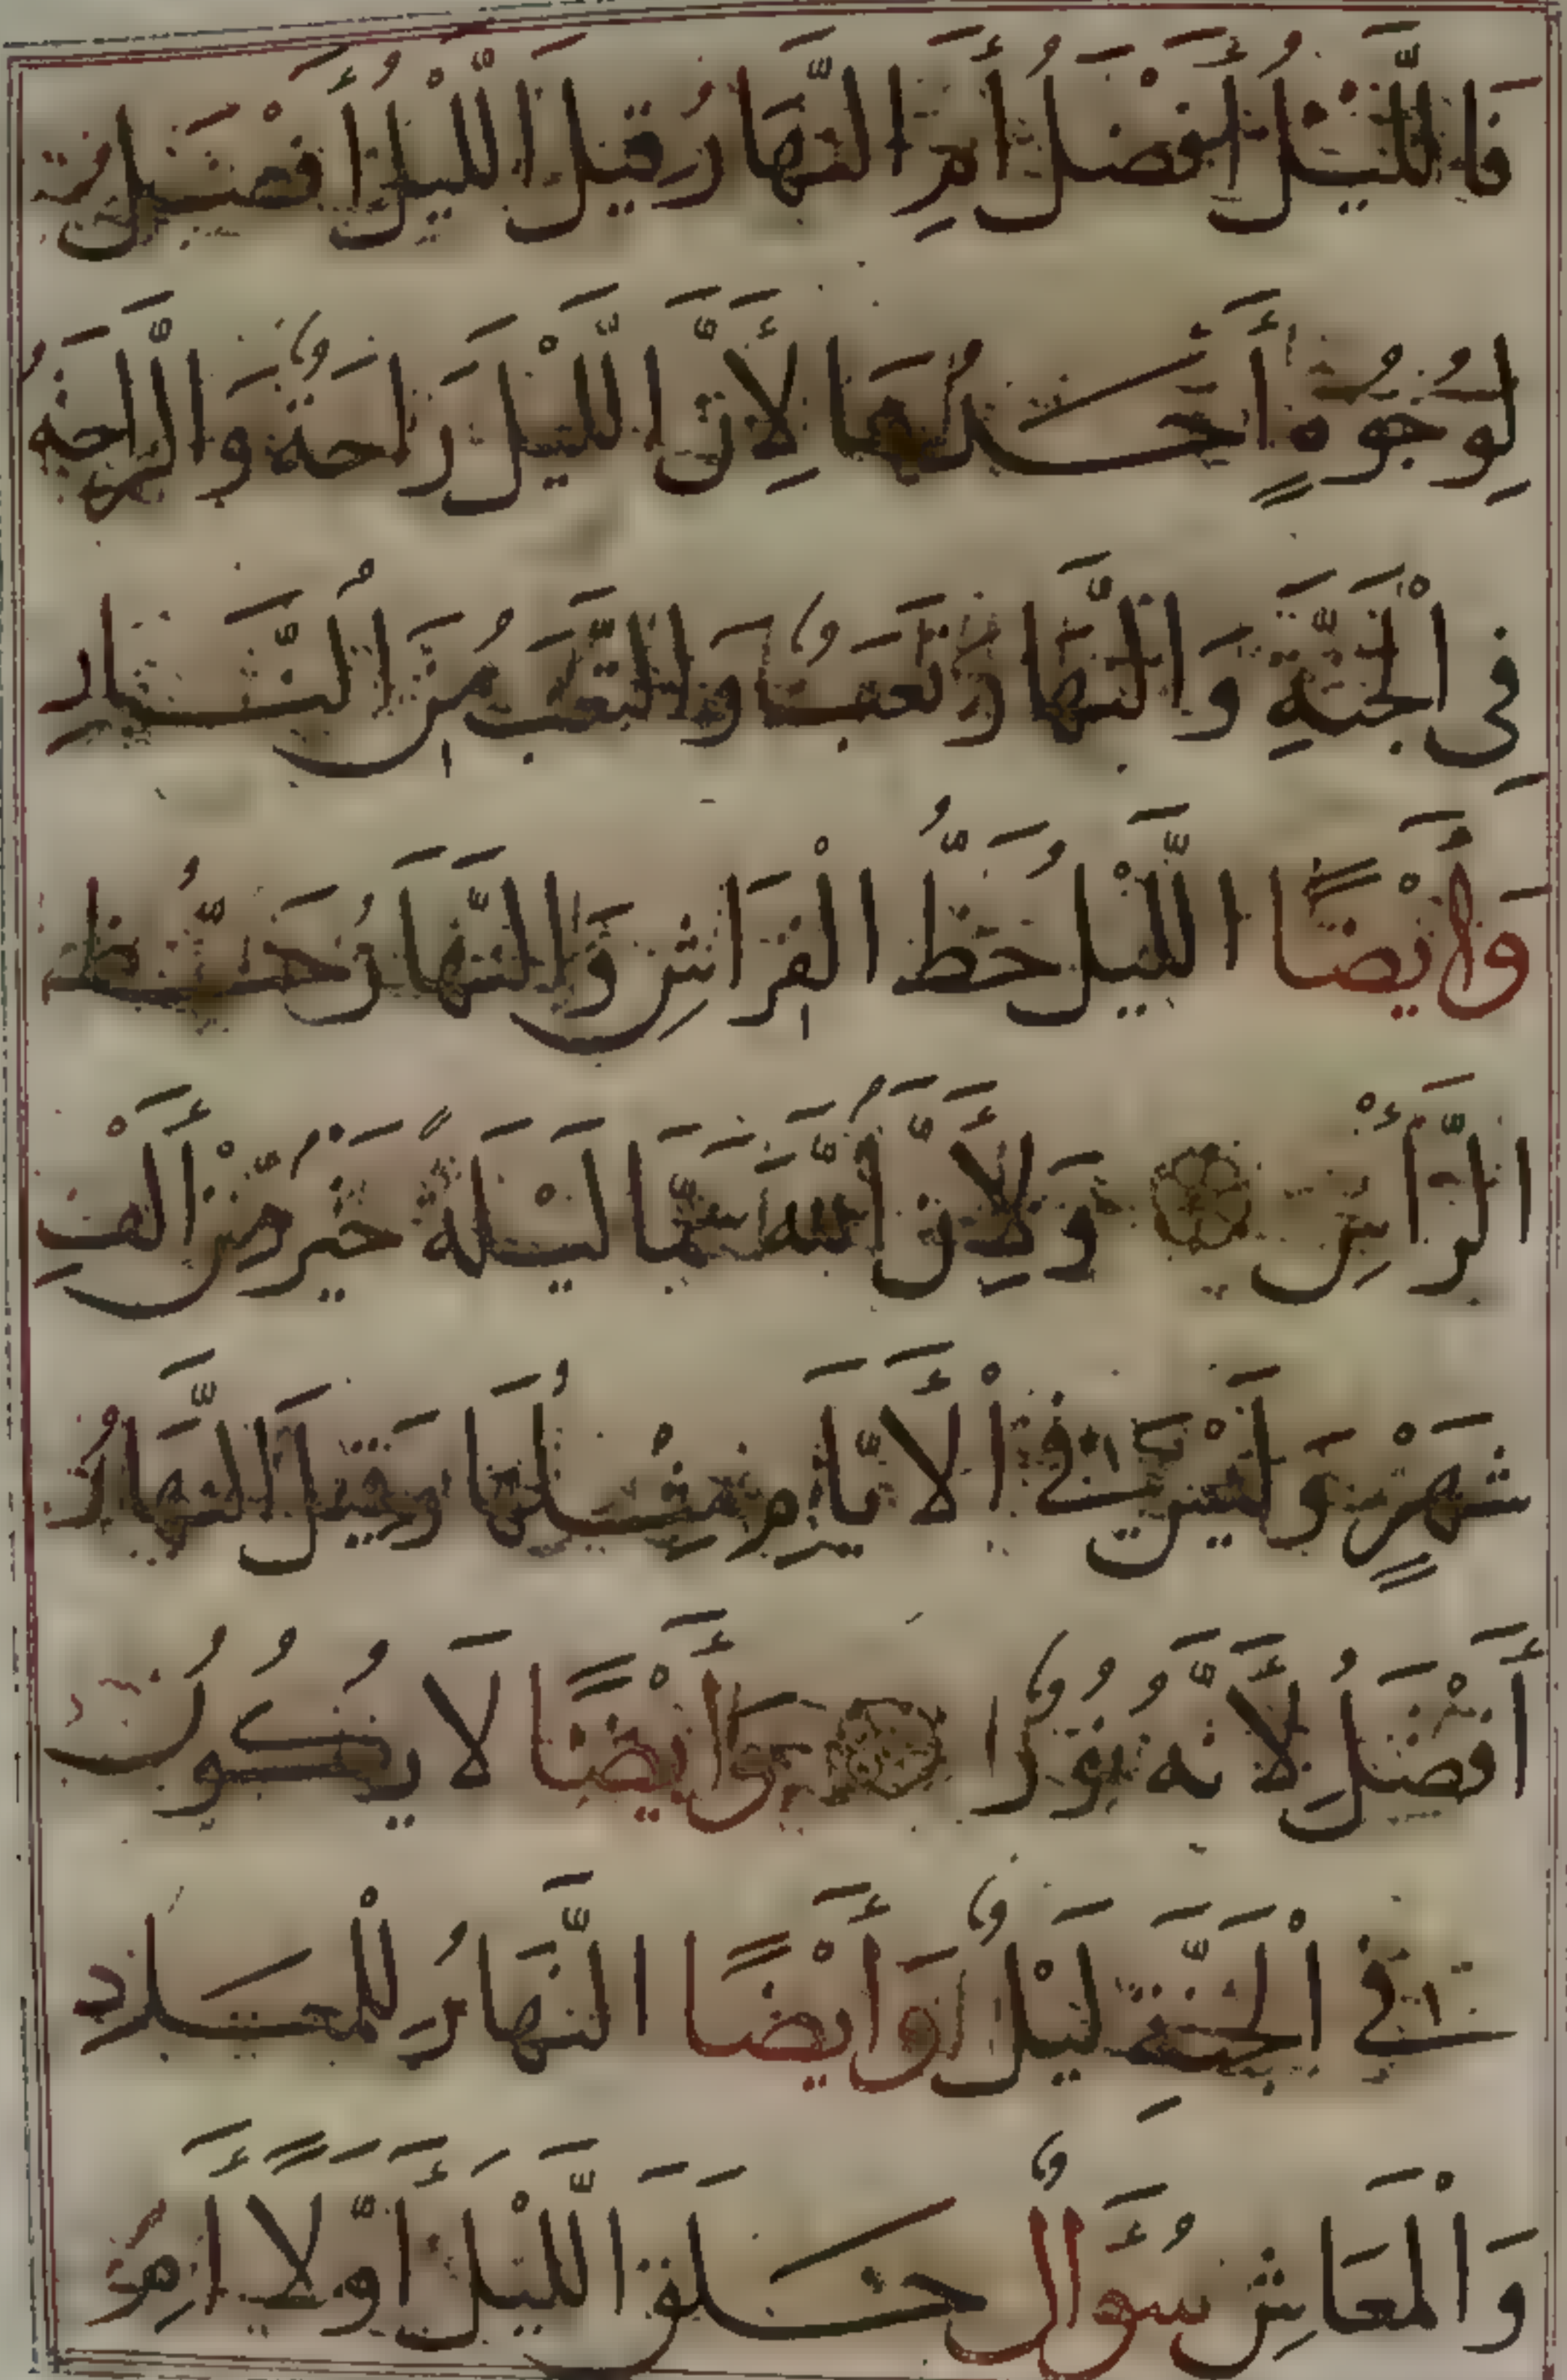 فَاللَّيْلُ أَفْضَلُ أَمِ النَّهَارُ قِيلَ اللَّيْلُ أَفْضَلُ
لِوُجُوهٍ أَحَدُهَا لِأَنَّ اللَّيْلَ رَاحَةٌ وَالرَّاحَةُ
فِي الْجَنَّةِ وَالنَّهَارَ تَعَبٌ وَالتَّعَبُ مِنَ النَّارِ
وَأَيْضًا اللَّيْلُ حَظُّ الْفِرَاشِ وَالنَّهَارُ حَظُّ
الرَّأْسِ وَلِأَنَّ اللَّهَ سَمَّا لَيْلَةً خَيْرٌ مِّنْ أَلْفِ
شَهْرٍ وَلَيْسَ فِي الْأَيَّامِ مِثْلُهَا وَقِيلَ النَّهَارُ
أَفْضَلُ لِأَنَّهُ نُورٌ وَأَيْضًا لَا يَكُونُ
فِي الْجَنَّةِ لَيْلٌ وَأَيْضًا النَّهَارُ لِلْمَعَادِ
وَالْمَعَاشِ سُؤَالٌ خَلَقَ اللَّيْلَ أَوَّلًا أَمِ